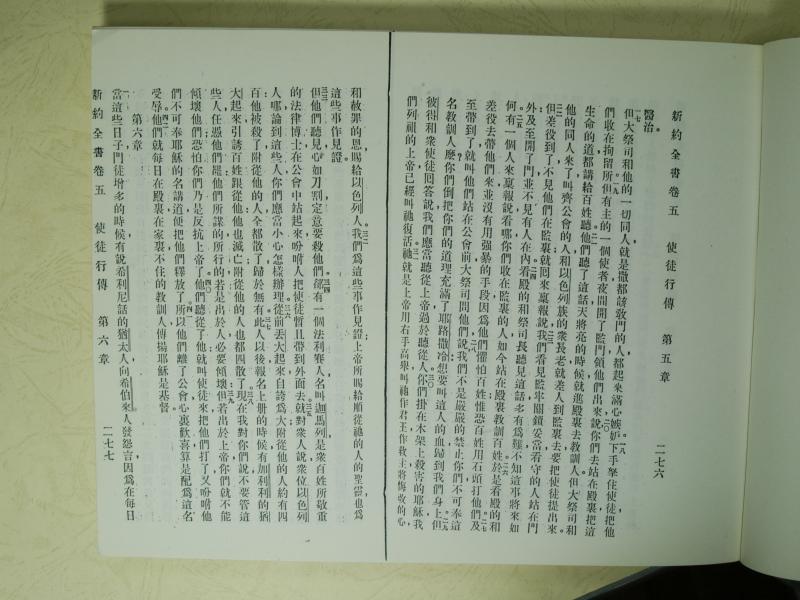 新約全書卷五　使徒行傳　第五章　二七六
醫治。
但大祭司和他的一切同人就是撒都該敎門的人都起來滿心嫉妒下手拏住使徒把他
們收在拘留所但有主的一個使者夜間開了監門領他們出來說你們去站在殿裏把這
生命的道都講給百姓聽他們聽了這話天將亮的時候就進殿裏去敎訓人但大祭司和
他的同人來了叫齊公會的人和以色列族的衆長老就差人到監裏去要把使徒提出來
但差役到了不見他們在監裏就回來稟報說我們看見監牢關鎖妥當看守的人站在門
外及至開了門並不見有人在內看殿的和祭司長聽見這話多有爲難不知這事將來如
何有一個人來稟報說看哪你們收在監裏的人如今站在殿裏敎訓百姓於是看殿的和
差役去帶他們來並沒有用强暴的手段因爲他們懼怕百姓惟恐百姓用石頭打他們及
至帶到了就叫他們站在公會前大祭司問他們說我們不是嚴嚴的禁止你們不可奉這
名敎訓人麽你們倒把你們的道理充滿了耶路撒冷想要叫這人的血歸到我們身上但
彼得和衆使徒回答說我們應當聽從上帝過於聽從人你們掛在木架上殺害的耶穌我
們列祖的上帝已經叫祂復活祂就是上帝用右手高舉叫祂作君王作救主將悔改的心
和赦罪的恩賜給以色列人我們爲這些事作見證上帝所賜給順從祂的人的聖靈也爲
這些事作見證
但他們聽見心如刀割定意要殺他們卻有一個法利賽人名叫迦馬列是衆百姓所敬重
的法律博士在公會中站起來吩咐人把使徒暫且帶到外面去就對衆人說衆位以色列
人哪論到這些人你們應當小心怎樣辦理從前丟大起來自誇爲大附從他的人約有四
百他被殺了附從他的人全都散了歸於無有此人以後報名上册的時候有加利利的猶
大起來引誘百姓跟從他他也滅亡附從他的人也都四散了現在我對你們說不要管這
些人任憑他們罷他們所謀的所行的若是出於人必要傾壞但若出於上帝你們就不能
傾壞他們恐怕你們乃是反抗上帝了他們聽從了他就叫使徒來把他們打了又吩咐他
們不可奉耶穌的名講道便把他們釋放了所以他們離了公會心裏歡喜算是配爲這名
受辱他們就每日在殿裏在家裏不住的敎訓人傳揚耶穌是基督
第六章
當這些日子門徒增多的時候有說希利尼話的猶太人向希伯來人發怨言因爲在每日
新約全書卷五　使徒行傳　第六章　二七七